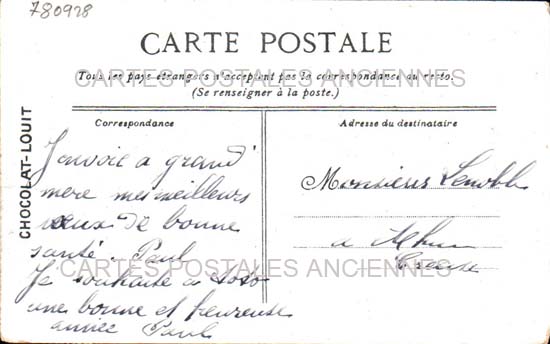 780928
CARTE POSTALE
Tous les pays étrangers n'acceptent pas la correspondance au recto.
(Se renseigner à la poste.)
CARTES POSTALES ANCIENNES
CHOCOLAT-LOUIT
Correspondance
J'envoie a grand'
mere mes meilleurs
vœux de bonne
santé Paul
Je souhaite a
une bonne et heureuse
année Paul
Adresse du destinataire
Monsieur Lenoble
a Ahun
Creuse
CARTES POSTALES ANCIENNES